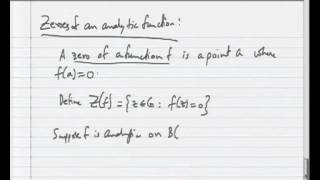 Zeroes of an analytic function:
A zero of a function f is a point a where
f(a)=0.
Define Z(f) = {z∈G : f(z)=0}
Suppose f is analytic on B(